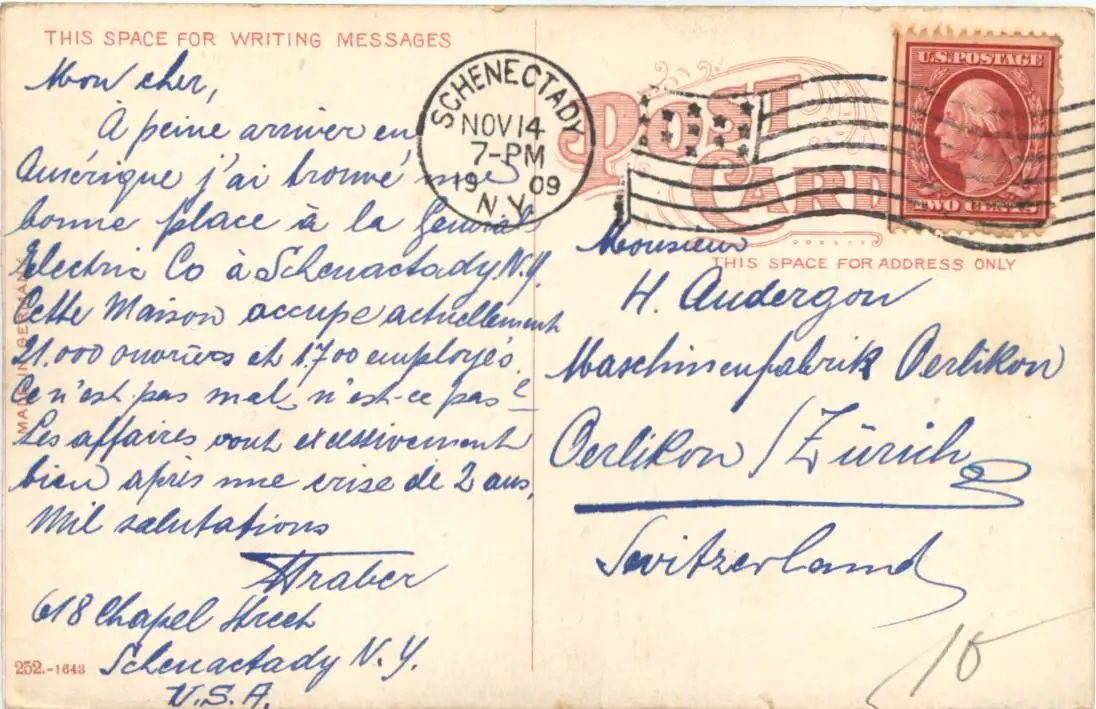 THIS SPACE FOR WRITING MESSAGES
Mon cher,
À peine arriver en
Amérique j'ai trouvé une
bonne place à la General
Electric Co à Schenactady N.Y.
Cette Maison accupe actuellement
21.000 ouvriers et 1.700 employés.
Ce n'est pas mal, n'est-ce pas?
Les affaires vont excessivement
bien après une crise de 2 ans.
Mil salutations
HTraber
618 Chapel Street
Schenactady N.Y.
U.S.A.
252.-1643
MADE IN GERMANY
SCHENECTADY
NOV 14
7-PM
19 09
N.Y.
POST
CARD
U.S. POSTAGE
TWO CENTS
THIS SPACE FOR ADDRESS ONLY
Monsieur
H. Andergon
Maschinenfabrik Oerlikon
Oerlikon / Zürich
Switzerland
10